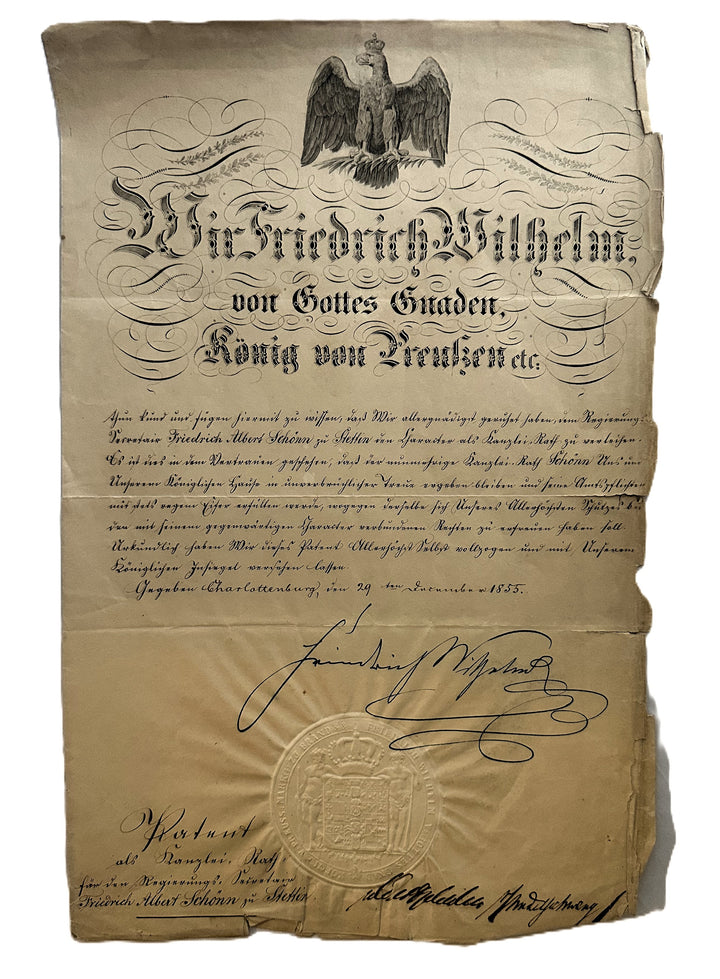 Wir Friedrich Wilhelm,
von Gottes Gnaden,
König von Preußen etc:
thun kund und fügen hiermit zu wissen, daß Wir allergnädigst geruhet haben, dem Regierungs-
Secretair Friedrich Albert Schönn zu Stettin den Character als Kanzlei-Rath zu verleihen.
Es ist dies in dem Vertrauen geschehen, daß der nunmehrige Kanzlei-Rath Schönn Uns und
Unserem Königlichen Hause in unverbrüchlicher Treue ergeben bleiben und seine Amtspflichten
mit stets regem Eifer erfüllen werde, wogegen derselbe sich Unseres Allerhöchsten Schutzes bei
den mit seinem gegenwärtigen Character verbundenen Rechten zu erfreuen haben soll.
Urkundlich haben Wir dieses Patent Allerhöchst Selbst vollzogen und mit Unserem
Königlichen Insiegel versehen lassen.
Gegeben Charlottenburg, den 29ten December 1855.
Friedrich Wilhelm
Patent
als Kanzlei-Rath
für den Regierungs-Secretair
Friedrich Albert Schönn zu Stettin.